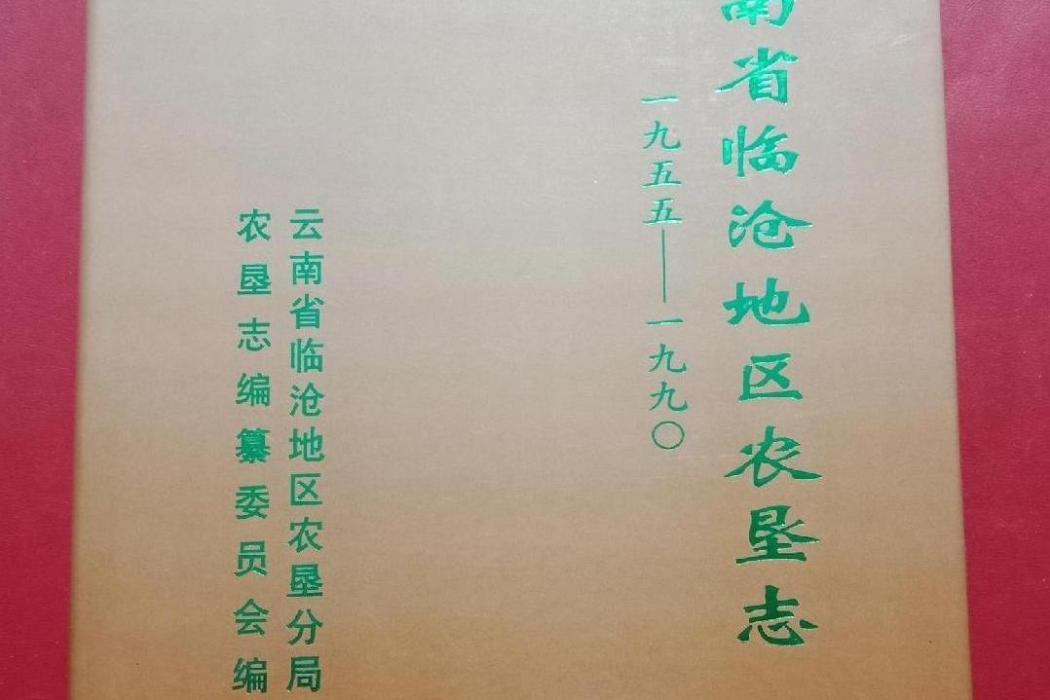 南省临沧地区农垦志
一九五五——一九九〇
云南省临沧地区农垦分局
农垦志编纂委员会编